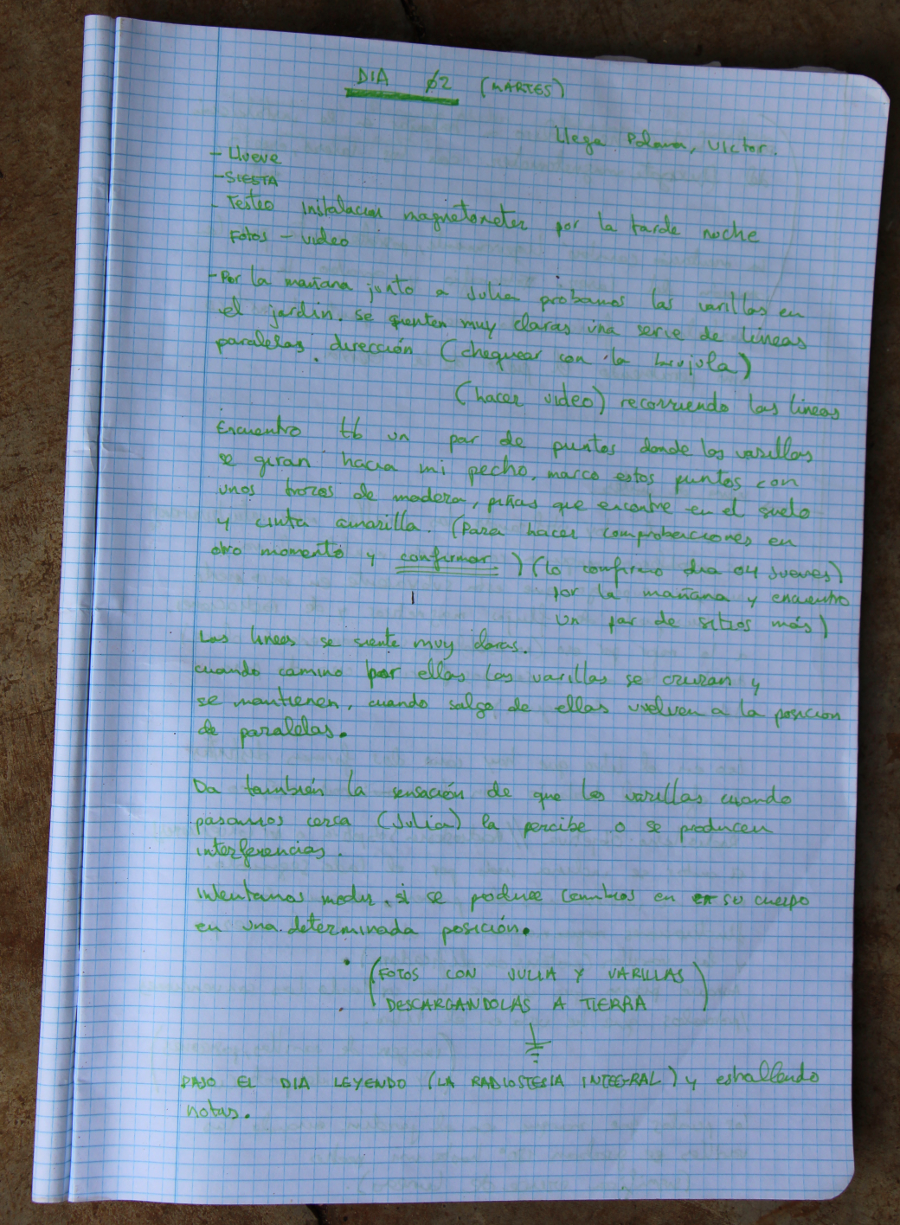 DIA 02 (MARTES)
Llega Paloma, Victor.
- Llueve
- SIESTA
- Testeo instalacion magnetometer por la tarde noche
Fotos - video
- Por la mañana junto a Julia probamos las varillas en
el jardin. se sienten muy claras una serie de lineas
paralelas. dirección (chequear con la brujola)
(hacer video) recorriendo las lineas
Encuentro tb un par de puntos donde las varillas
se giran hacia mi pecho, marco estos puntos con
unos trozos de madera, piñas que encontre en el suelo
y cinta amarilla. (Para hacer comprobaciones en
otro momento y confirmar) (lo confirmo dia 04 Jueves)
por la mañana y encuentro
un par de sitios más)
Las lineas se siente muy claras.
cuando camino por ellas las varillas se cruzan y
se mantienen, cuando salgo de ellas vuelven a la posicion
de paralelas.
Da también la sensación de que las varillas cuando
pasamos cerca (Julia) la percibe o se producen
interferencias.
intentamos medir, si se produce cambios en su cuerpo
en una determinada posición.
(FOTOS CON JULIA Y VARILLAS
DESCARGANDOLAS A TIERRA)
PASO EL DIA LEYENDO (LA RADIOSTESIA INTEGRAL) y
notas.